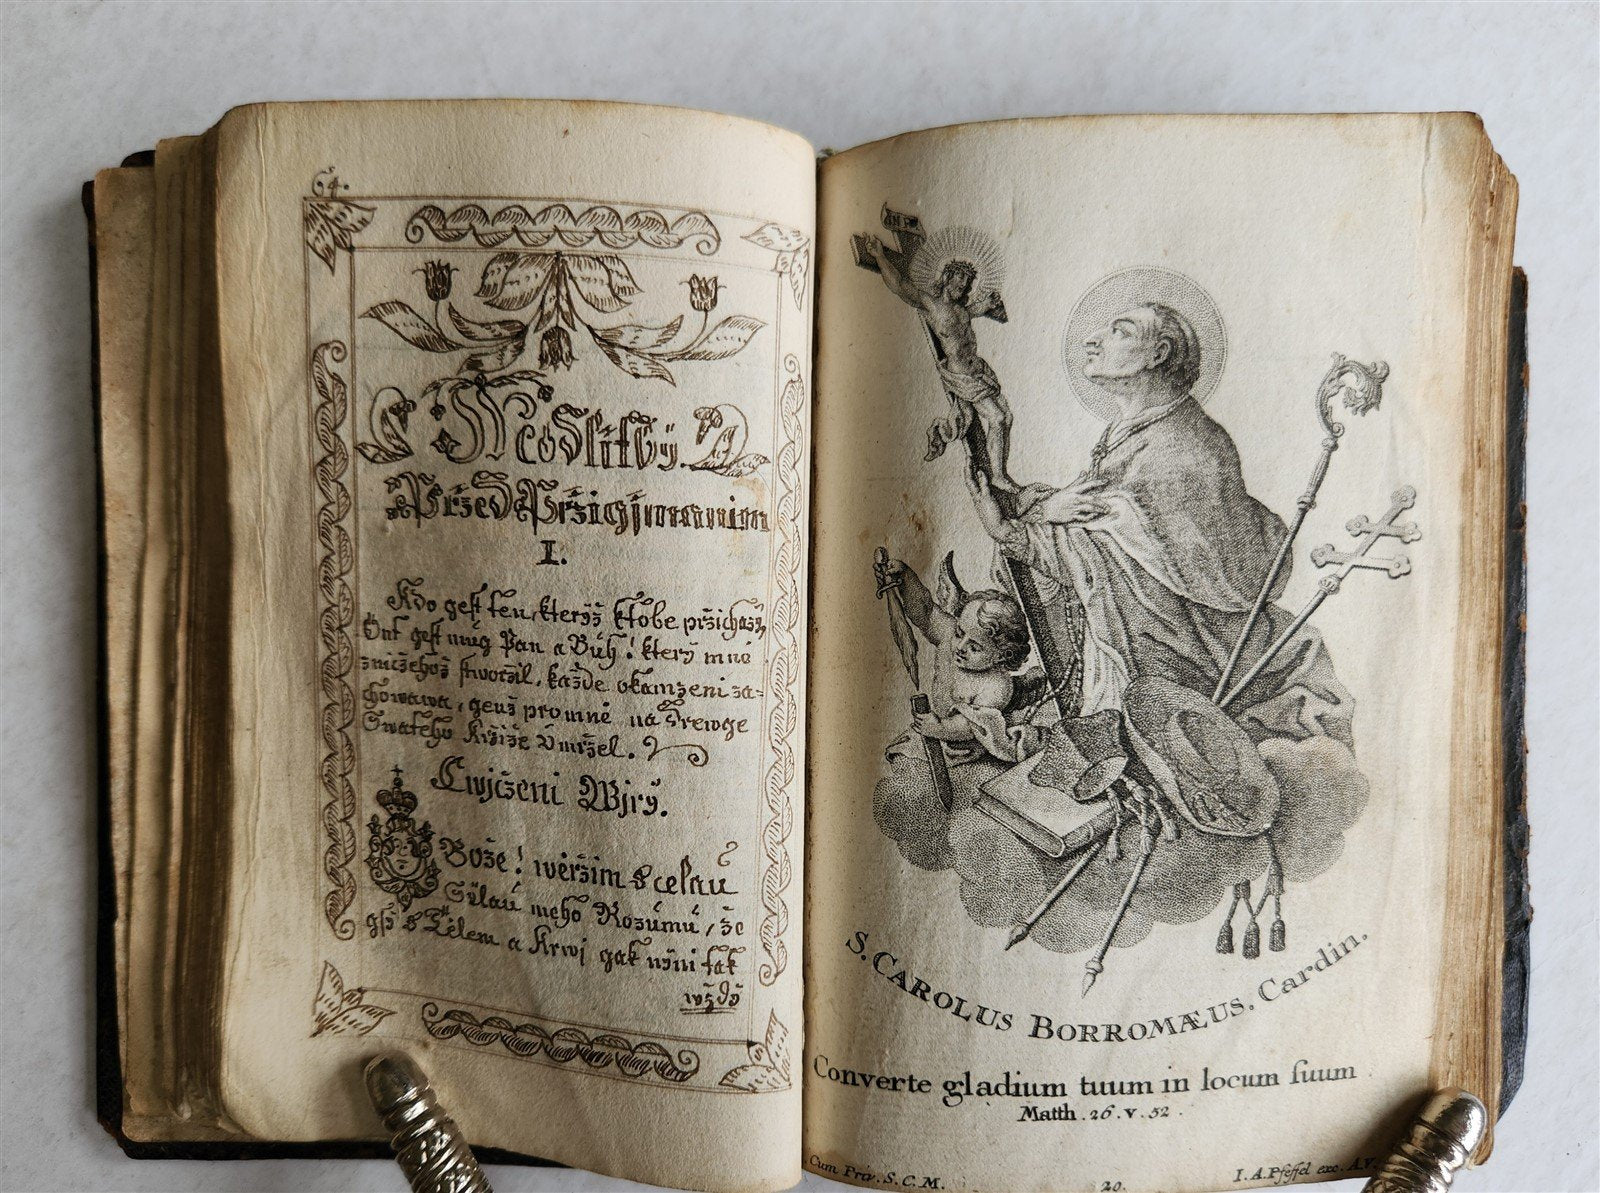 64.
Modlitbÿ.
Pržed Pržigjmanim
I.
Kdo gest ten, kterýž ktobe pržichazÿ,
Ont gest múg Pan a Búh! který mne
zničžehož stworžil, každe okamženi za=
chowawa, genž promne na Drewge
Swateho Kržiže Umržel.
Cwjčženi Wjrÿ.
Bože! weržim s celaú
Sÿlaú meho Rozúmú, že
gsÿ s Tělem a Krwj gak nÿni tak
wždÿ
INRI
S. CAROLUS BORROMÆUS. Cardin.
Converte gladium tuum in locum ſuum
Matth. 26. v. 52.
Cum Priv. S. C. M. 20. I. A. Pfeffel exc. A.V.